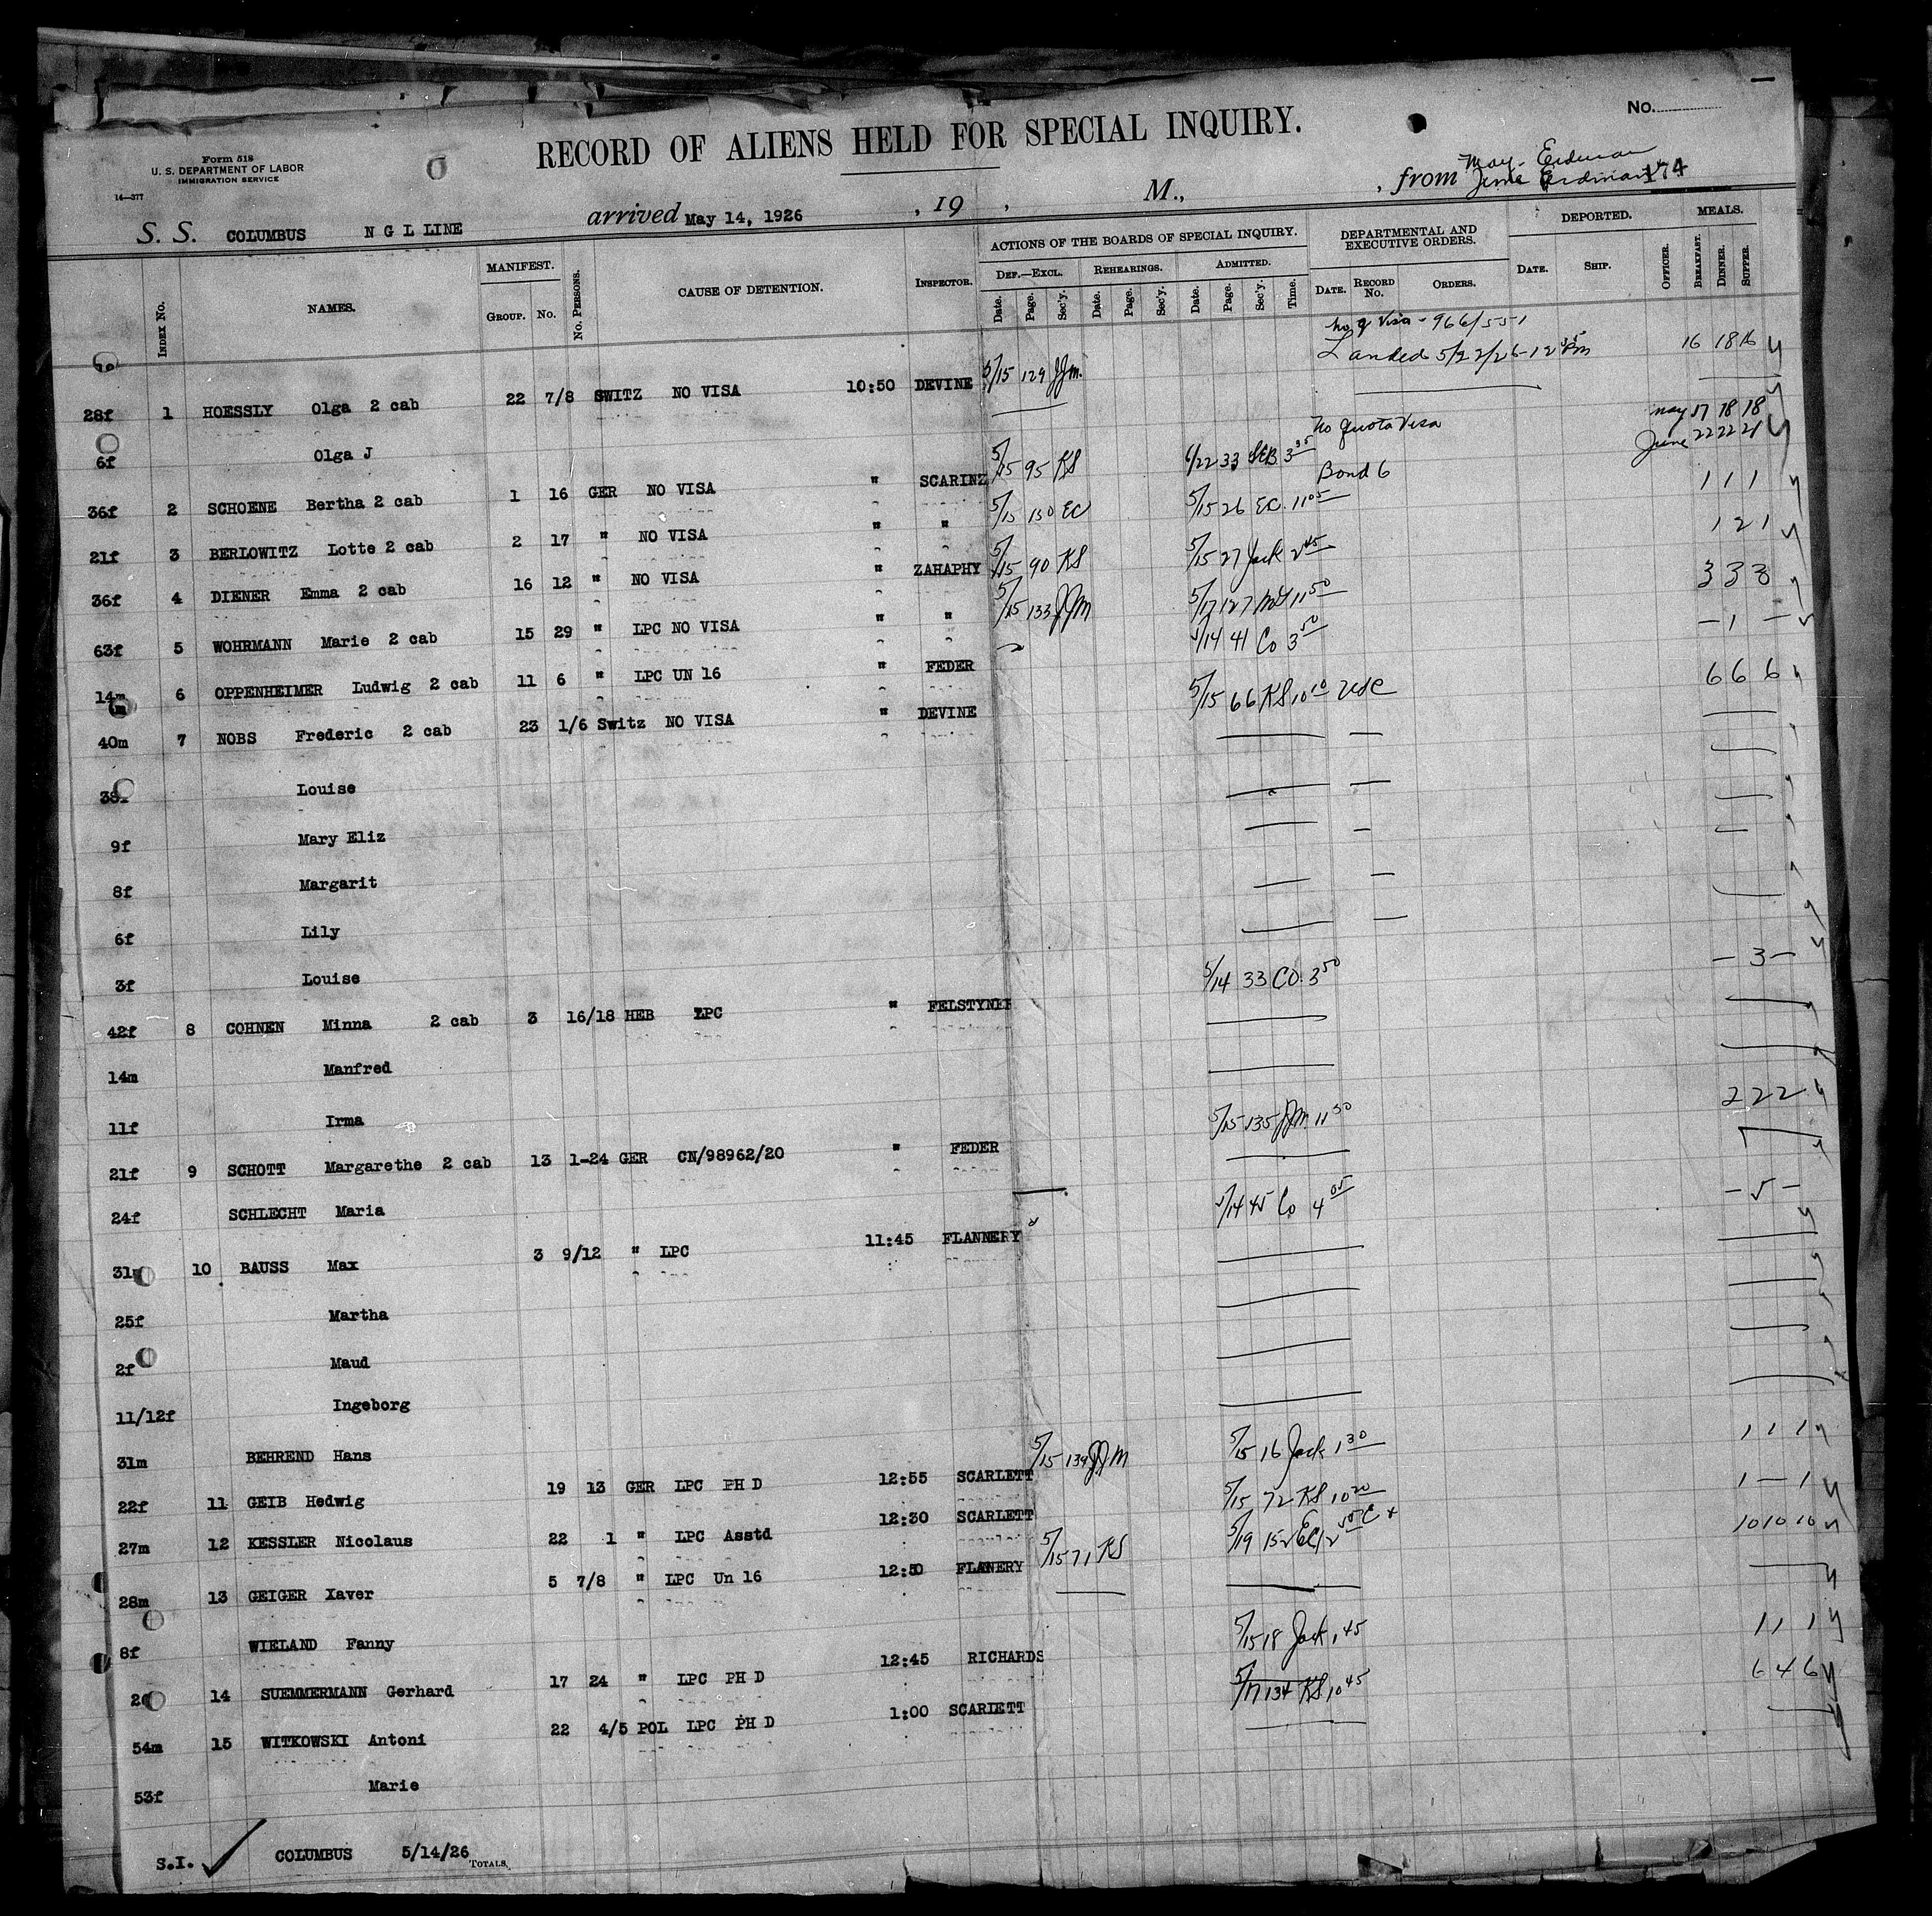 No.
RECORD OF ALIENS HELD FOR SPECIAL INQUIRY.
Form 518
U. S. DEPARTMENT OF LABOR
IMMIGRATION SERVICE
14—377
S. S. COLUMBUS N G L LINE arrived May 14, 1926 , 19 , M., , from May - Erdman
June Erdman 174
INDEX No. NAMES. MANIFEST. GROUP. No. No. PERSONS. CAUSE OF DETENTION. INSPECTOR. ACTIONS OF THE BOARDS OF SPECIAL INQUIRY. DEF.—EXCL. Date. Page. Sec'y. REHEARINGS. Date. Page. Sec'y. ADMITTED. Date. Page. Sec'y. Time. DEPARTMENTAL AND EXECUTIVE ORDERS. DATE. RECORD No. ORDERS. DEPORTED. DATE. SHIP. OFFICER. MEALS. BREAKFAST. DINNER. SUPPER.
no q Visa - 966/551
28f 1 HOESSLY Olga 2 cab 22 7/8 SWITZ NO VISA 10:50 DEVINE 5/15 129 JJM. Landed 5/22/26 - 12 35 Pm 16 18 16
6f Olga J
36f 2 SCHOENE Bertha 2 cab 1 16 GER NO VISA " SCARINZ 5/15 95 KS 6/22 33 SEB 3 35 no quota Visa Bond 6 May 17 18 18 June 22 22 21
21f 3 BERLOWITZ Lotte 2 cab 2 17 " NO VISA " " 5/15 130 EC 5/15 26 EC. 11 05 1 1 1
36f 4 DIENER Emma 2 cab 16 12 " NO VISA " ZAHAPHY 5/15 90 KS 5/15 27 Jack 2 45 1 2 1
63f 5 WOHRMANN Marie 2 cab 15 29 " LPC NO VISA " " 5/15 133 JJM 5/17 127 11 50 3 3 3
14m 6 OPPENHEIMER Ludwig 2 cab 11 6 " LPC UN 16 " FEDER 5/14 41 Co 3 50 — 1 —
40m 7 NOBS Frederic 2 cab 23 1/6 Switz NO VISA " DEVINE 5/15 66 KS 10 10 USC 6 6 6
38f Louise
9f Mary Eliz
8f Margarit
6f Lily
3f Louise
42f 8 COHNEN Minna 2 cab 3 16/18 HEB LPC " FELSTYNER 5/14 33 CO. 3 50 — 3 —
14m Manfred
11f Irma
21f 9 SCHOTT Margarethe 2 cab 13 1-24 GER CN/98962/20 " FEDER 5/15 135 JJM 11 30 2 2 2
24f SCHLECHT Maria
31m 10 BAUSS Max 3 9/12 " LPC 11:45 FLANNERY 5/14 45 Co 4 05 — 5 —
25f Martha
2f Maud
11/12f Ingeborg
31m BEHREND Hans
22f 11 GEIB Hedwig 19 13 GER LPC PH D 12:55 SCARLETT 5/15 139 JJM 5/15 16 Jack 1 30 1 1 1
27m 12 KESSLER Nicolaus 22 1 " LPC Asstd 12:30 SCARLETT 5/15 72 KS 10 20 1 — 1
28m 13 GEIGER Xaver 5 7/8 " LPC Un 16 12:50 FLANERY 5/15 71 KS 5/19 15 EC 10 10 10
8f WIELAND Fanny
14 SUEMMERMANN Gerhard 17 24 " LPC PH D 12:45 RICHARDS 5/15 18 Jack 1 45 1 1 1
54m 15 WITKOWSKI Antoni 22 4/5 POL LPC PH D 1:00 SCARLETT 5/17 134 KS 10 45 6 4 6
53f Marie
S.I. ✓ COLUMBUS 5/14/26 TOTALS,